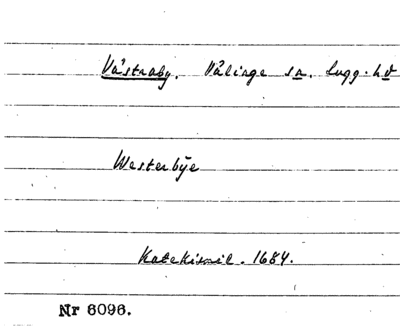 Västraby. Välinge sn. Lugg. hd
Westerbÿe
Katekismil. 1684.
Nr 6096.